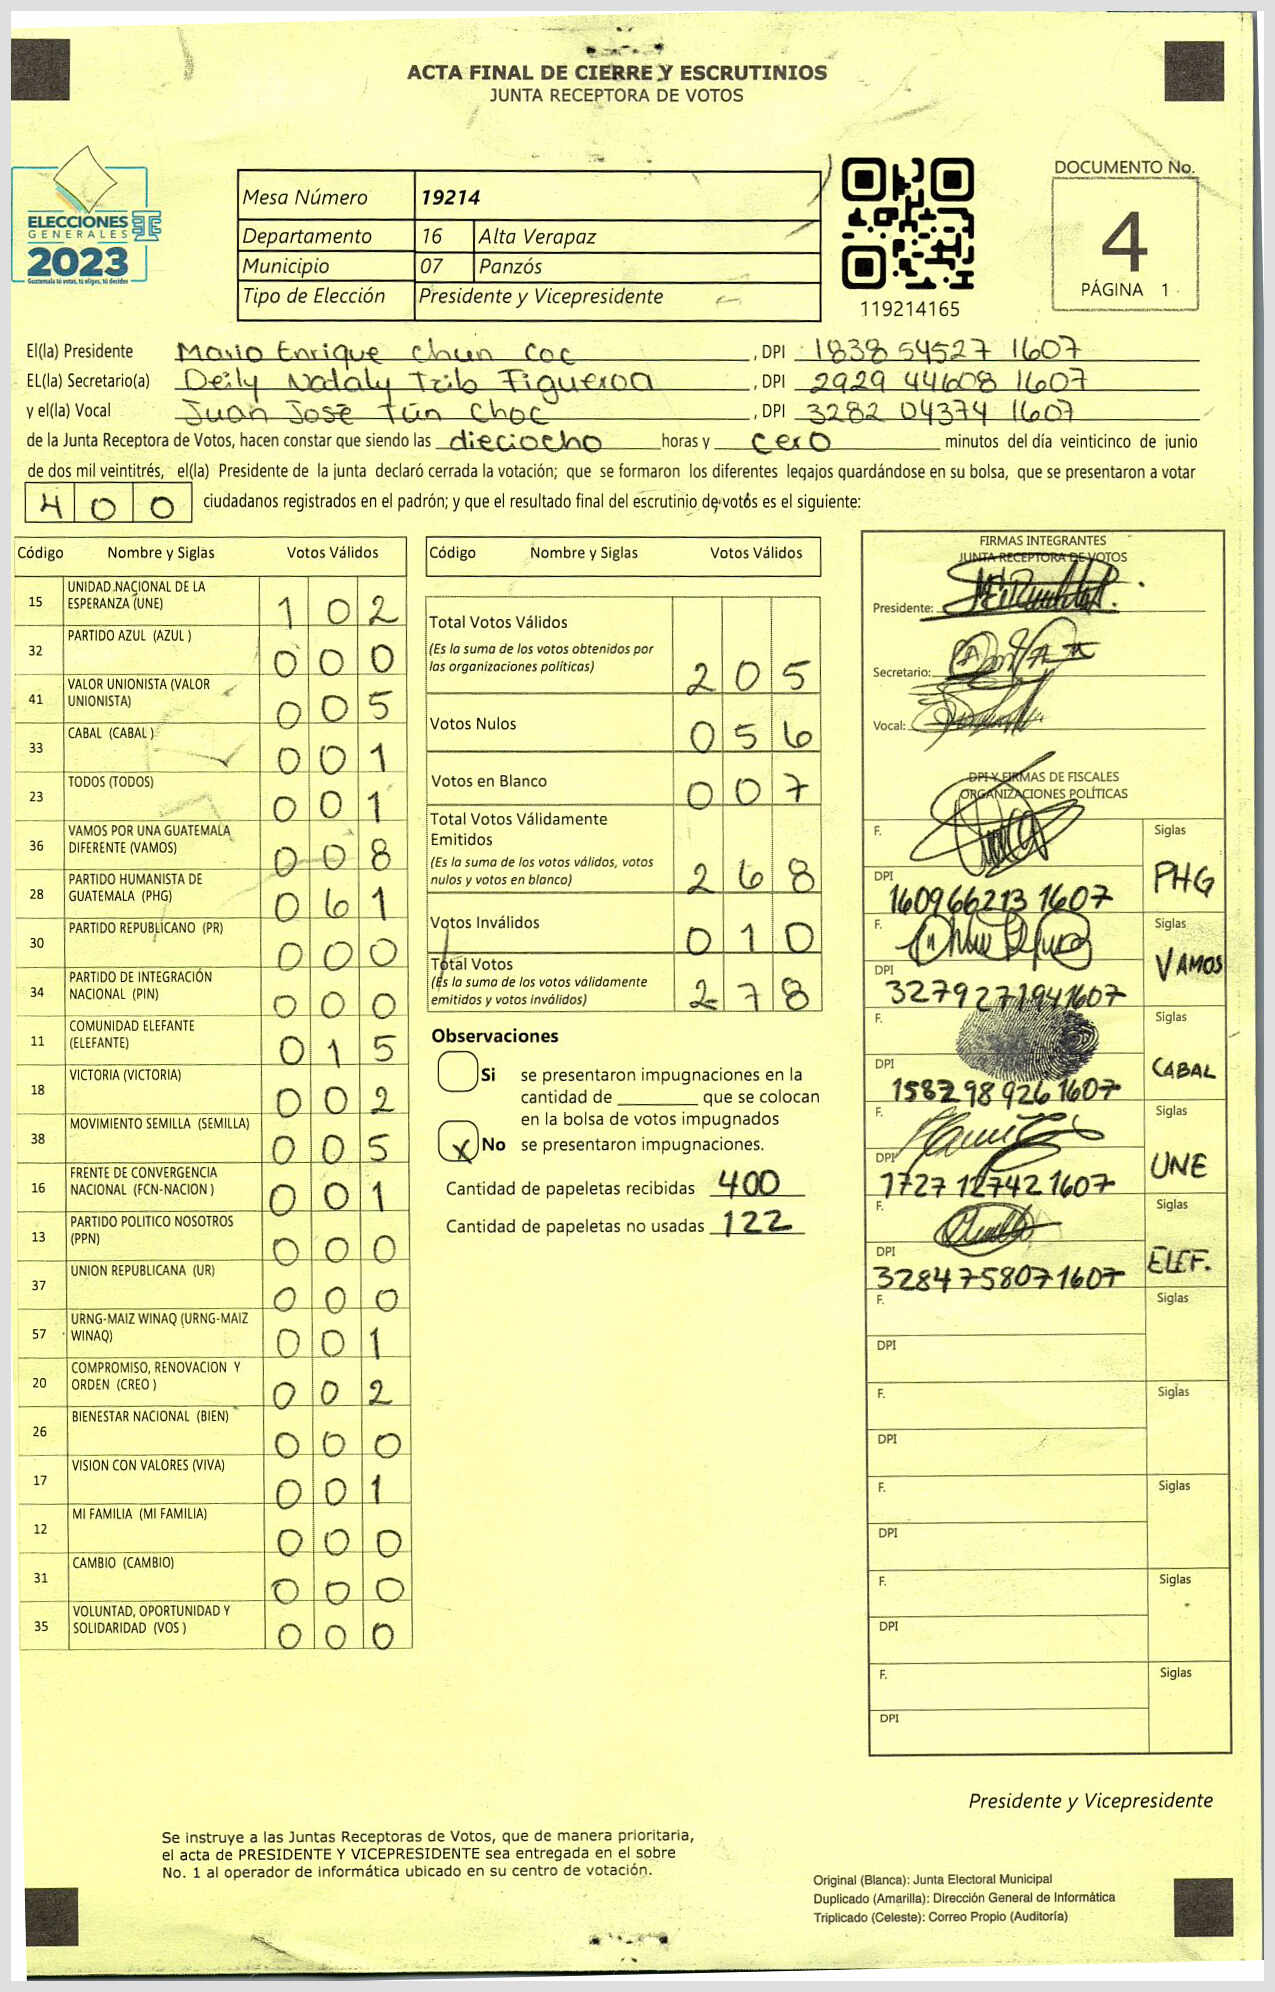 ACTA FINAL DE CIERRE Y ESCRUTINIOS
JUNTA RECEPTORA DE VOTOS
ELECCIONES
GENERALES
2023
Guatemala tú votas, tú eliges, tú decides
Mesa Número 19214
Departamento 16 Alta Verapaz
Municipio 07 Panzós
Tipo de Elección Presidente y Vicepresidente
119214165
DOCUMENTO No.
4
PÁGINA 1
El(la) Presidente Mario Enrique Chun Coc, DPI 1838 54527 1607
EL(la) Secretario(a) Deily Nataly Tzib Figueroa, DPI 2929 44608 1607
y el(la) Vocal Juan José Tún Choc, DPI 3282 04374 1607
de la Junta Receptora de Votos, hacen constar que siendo las dieciocho horas y cero minutos del día veinticinco de junio
de dos mil veintitrés, el(la) Presidente de la junta declaró cerrada la votación; que se formaron los diferentes legajos quardándose en su bolsa, que se presentaron a votar
400 ciudadanos registrados en el padrón; y que el resultado final del escrutinio de votos es el siguiente:
Código Nombre y Siglas Votos Válidos
15 UNIDAD NACIONAL DE LA
ESPERANZA (UNE) 102
32 PARTIDO AZUL (AZUL ) 000
41 VALOR UNIONISTA (VALOR
UNIONISTA) 005
33 CABAL (CABAL ) 001
23 TODOS (TODOS) 001
36 VAMOS POR UNA GUATEMALA
DIFERENTE (VAMOS) 008
28 PARTIDO HUMANISTA DE
GUATEMALA (PHG) 061
30 PARTIDO REPUBLICANO (PR) 000
34 PARTIDO DE INTEGRACIÓN
NACIONAL (PIN) 000
11 COMUNIDAD ELEFANTE
(ELEFANTE) 015
18 VICTORIA (VICTORIA) 002
38 MOVIMIENTO SEMILLA (SEMILLA) 005
16 FRENTE DE CONVERGENCIA
NACIONAL (FCN-NACION ) 001
13 PARTIDO POLITICO NOSOTROS
(PPN) 000
37 UNION REPUBLICANA (UR) 000
57 URNG-MAIZ WINAQ (URNG-MAIZ
WINAQ) 001
20 COMPROMISO, RENOVACION Y
ORDEN (CREO ) 002
26 BIENESTAR NACIONAL (BIEN) 000
17 VISION CON VALORES (VIVA) 001
12 MI FAMILIA (MI FAMILIA) 000
31 CAMBIO (CAMBIO) 000
35 VOLUNTAD, OPORTUNIDAD Y
SOLIDARIDAD (VOS ) 000
Código Nombre y Siglas Votos Válidos
Total Votos Válidos
(Es la suma de los votos obtenidos por
las organizaciones políticas) 205
Votos Nulos 056
Votos en Blanco 007
Total Votos Válidamente
Emitidos
(Es la suma de los votos válidos, votos
nulos y votos en blanco) 268
Votos Inválidos 010
Total Votos
(Es la suma de los votos válidamente
emitidos y votos inválidos) 278
Observaciones
Si se presentaron impugnaciones en la
cantidad de ________ que se colocan
en la bolsa de votos impugnados
X No se presentaron impugnaciones.
Cantidad de papeletas recibidas 400
Cantidad de papeletas no usadas 122
FIRMAS INTEGRANTES
JUNTA RECEPTORA DE VOTOS
Presidente:
Secretario:
Vocal:
DPI Y FIRMAS DE FISCALES
ORGANIZACIONES POLÍTICAS
F. Siglas
DPI 160966213 1607 PHG
F. Siglas
DPI 3279271941607 VAMOS
F. Siglas
DPI 1587 98 926 1607 CABAL
F. Siglas
DPI 1727 12742 1607 UNE
F. Siglas
DPI 3284758071607 ELEF.
F. Siglas
DPI
F. Siglas
DPI
F. Siglas
DPI
F. Siglas
DPI
F. Siglas
DPI
Presidente y Vicepresidente
Se instruye a las Juntas Receptoras de Votos, que de manera prioritaria,
el acta de PRESIDENTE Y VICEPRESIDENTE sea entregada en el sobre
No. 1 al operador de informática ubicado en su centro de votación.
Original (Blanca): Junta Electoral Municipal
Duplicado (Amarilla): Dirección General de Informática
Triplicado (Celeste): Correo Propio (Auditoría)